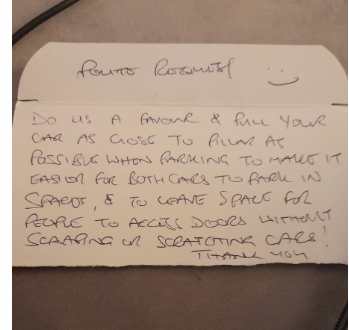 POLITE REQUEST
DO US A FAVOUR & PULL YOUR
CAR AS CLOSE TO PILLAR AS
POSSIBLE WHEN PARKING TO MAKE IT
EASIER FOR BOTH CARS TO PARK IN
SPACES, & TO LEAVE SPACE FOR
PEOPLE TO ACCESS DOORS WITHOUT
SCRAPING OR SCRATCHING CARS!
THANK YOU